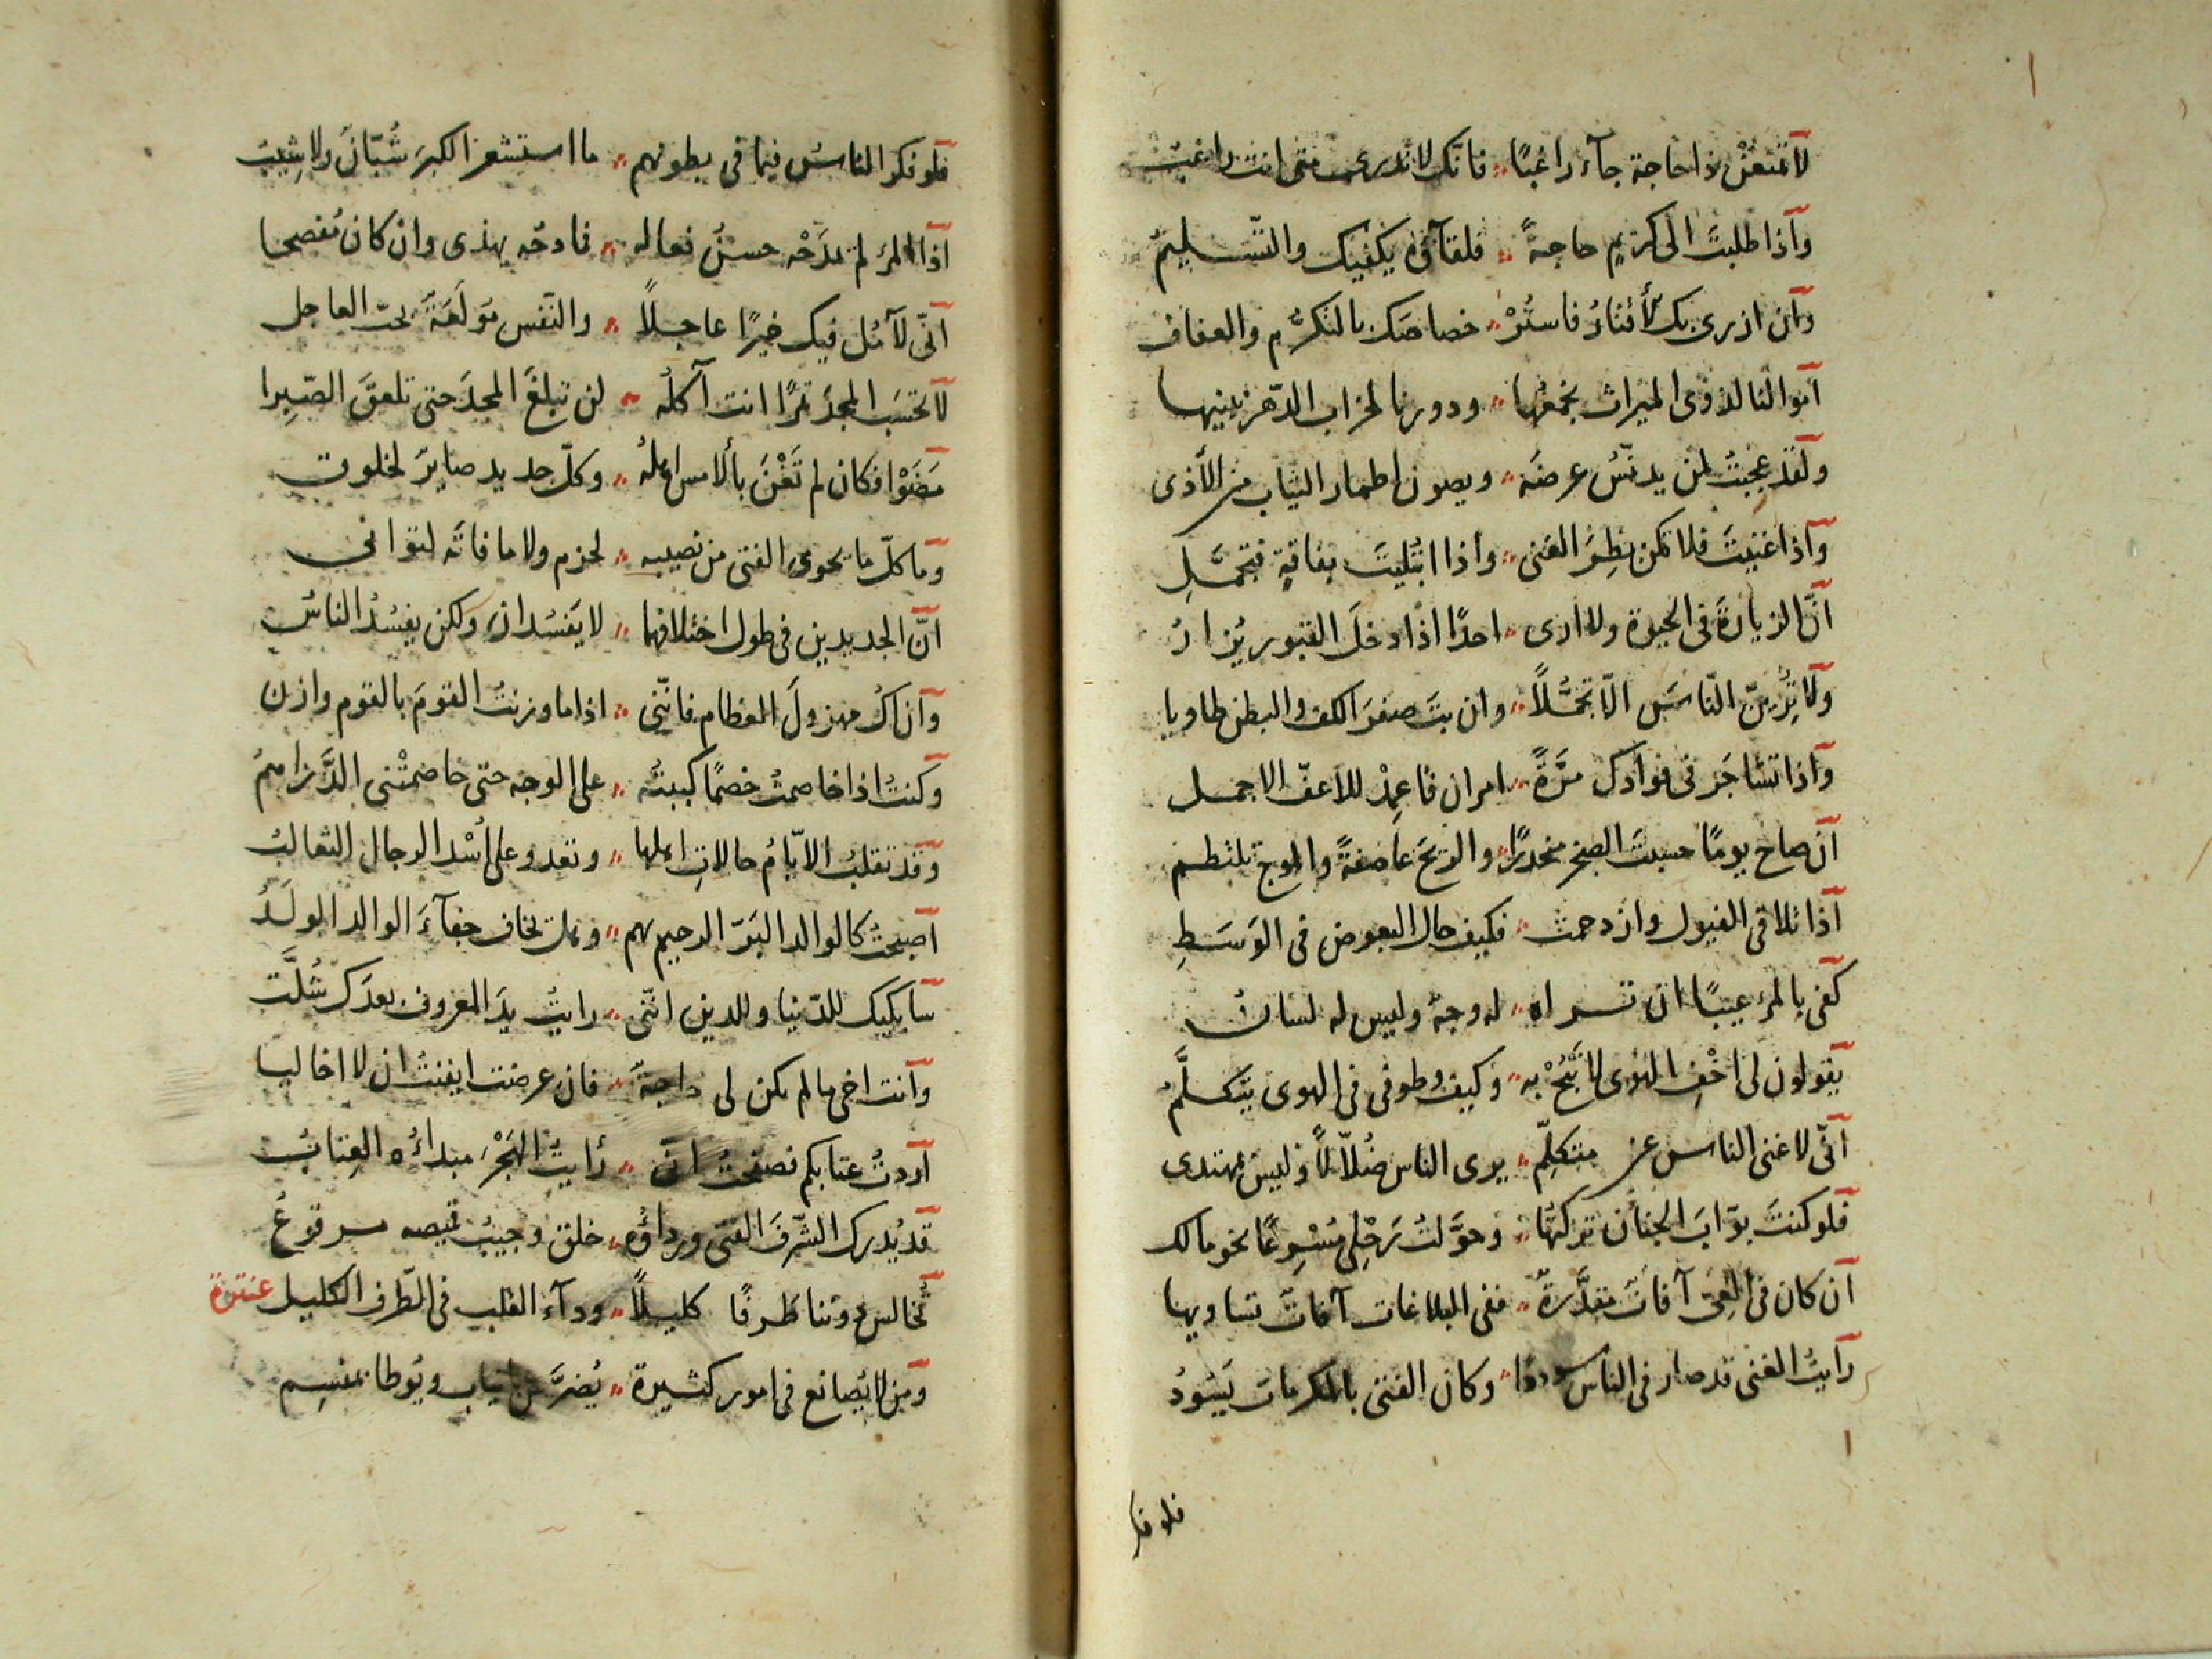 لا تمنعنْ ذا حاجة جآء راغبًا فانّك لا تدرى متى انت راغبُ
وآذا طلبتَ الى كريمٍ حاجةً فلقآؤه يكفيك والتّسليمُ
وان ازرى بك الأقتارُ فاستُرْ خصاصتك بالتكرُّم والعفاف
اموالنا لذوى الميراث نجمعُها ودورنا لخراب الدّهر نبنيها
ولقد عجبتُ لمن يدنّسُ عرضَه ويصون اطمار الثياب من الأذى
وآذا غنيتَ فلا تكن بطِرَ الغنى واذا ابتُليتَ بفاقةٍ فتجمَّلِ
انّ الزيارةَ فى الحيوة ولا ارى احدًا اذا دخلَ القبور يُزارُ
ولا تُرِيَنَّ النّاسَ الّا تجمُّلاً وان بتَ صفرَ الكف والبطن طاويا
وآذا تشاجَر فى فوادك مرّةً امران فاعمِدْ للاعفّ الاجمل
ان صاح يومًا حسبتَ الصخر منحدرًا والريحَ عاصفةً والموج يلتطم
اذا تلاقى الفيول وازدحمت فكيف حال البعوض فى الوَسَطِ
كفى بالمرء عيبًا ان تراه له وجهٌ وليس له لسانُ
يقولون لى اخْفِ الهوى لا تَبُحْ به وكيف وطرفى فى الهوى يتكلَّمُ
انّى لاغنى الناس عن متكلِّم يرى الناس ضُلّالاً وليس بمهتدى
فلو كنتَ بوّابَ الجنان تركتُها وحوَّلتُ رَحْلِى مُسْرِعًا نحو مالك
ان كان فى العىّ آفاتٌ مقدَّرةٌ ففى البلاغات آفاتٌ تساويها
رآيتُ الغنى قد صار فى الناس سوددًا وكان الفتى بالمكرمات يَسُودُ
فلو فكر
فلو فكر الناسُ فيما فى بطونهم ما استشعر الكبرَ شُبّانٌ ولا شِيبُ
اذا المرء لم يمدَحْه حسنُ فعاله فمادحُه يهذى وان كان مُفصحا
انّى لآمُل فيك خيرًا عاجلاً والنّفس مولَعَةٌ بحبّ العاجل
لا تحسَب المجدَ تمرًا انت آكلُه لن تبلغَ المجدَ حتى تلعقَ الصّبِرا
مَضَوْا فكان لم تَغْنَ بالأمس اهلهُ وكلّ جديد صايرٌ لخلوق
وما كلّ ما يحوى الفتى من نصيبه لحزم ولا ما فاتَه لتوانى
انّ الجديدين فى طول اختلافهما لا يَفسُدان ولكن يفسُدُ الناسُ
وآن اكُ مهزولَ العظام فانّنى اذا ما وزنتُ القومَ بالقوم وازن
وكنتُ اذا خاصمتُ خصمًا كببتُه على الوجه حتى خاصمتْنى الدَّراهمُ
وقد تقلبُ الايّامُ حالاتِ اهلها وتعدو على اُسْد الرجال الثعالبُ
اصبحتُ كالوالد البَرّ الرحيم بهم وهل يخاف جفآءَ الوالد الولَدُ
سابكيك للدّنيا وللدين انّنى رايتُ يدَ المعروف بعدَك شُلَّت
وآنت اخى ما لم يكن لى حاجةٌ فان عرضت ايقنتُ ان لا اخا ليا
آردتُ عتابكم فصفحتُ انّى رأيتُ الهَجْرَ مبداءُه العِتابُ
قد يُدرك الشّرفَ الفتى ورداؤه خلق وجيبُ قميصه مرقوعُ
تُخالس دوننا طَرفًا كليلاً ودآء القلب فى الطّرف الكليل عنترة
ومن لا يُصانع فى امور كثيرة يُضرَّس بانياب ويُوطا بمنسِم